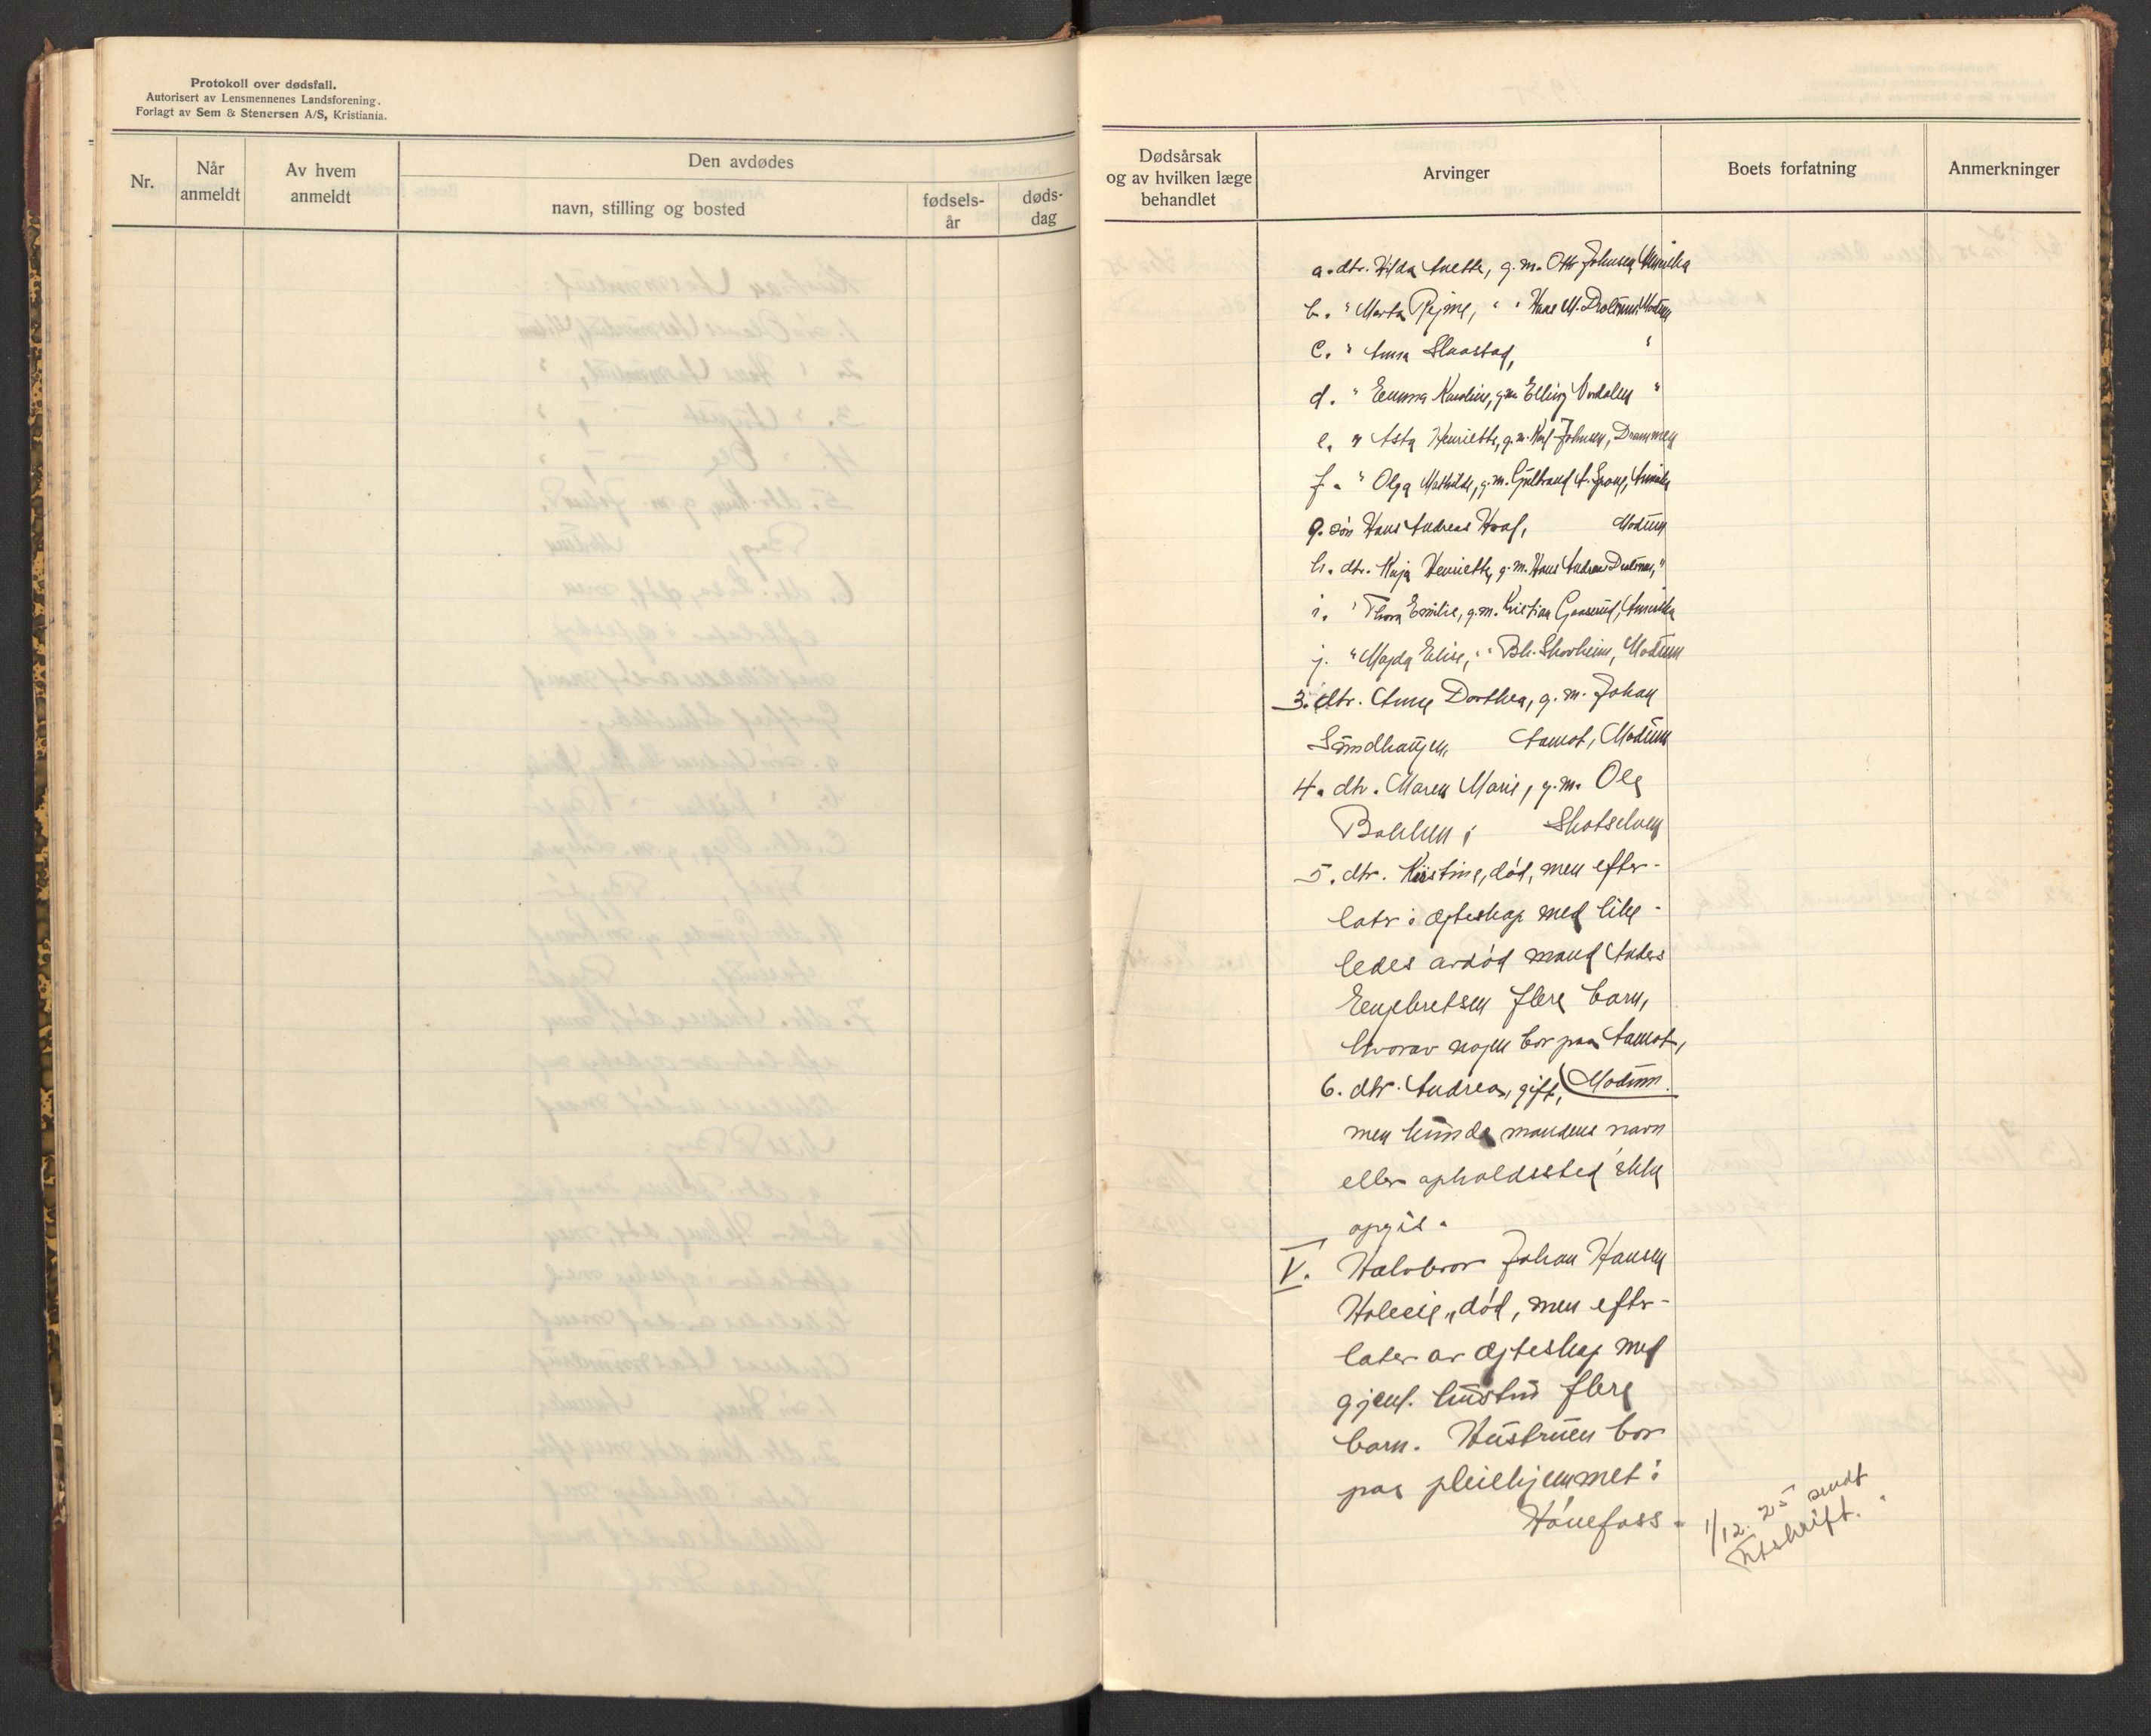 Protokoll over dødsfall.
Autorisert av Lensmennenes Landsforening.
Forlagt av Sem & Stenersen A/S, Kristiania.
Nr.
Når
anmeldt
Av hvem
anmeldt
Den avdødes
navn, stilling og bosted
fødsels-
år
døds-
dag
Dødsårsak
og av hvilken læge
behandlet
Arvinger
Boets forfatning
Anmerkninger
a. dtr. Hilda Anette, g.m. Otto Johnsen, Amerika
b. " Marta Regine, " " Hans M. Drolsum, Modum
c. " Anna Slaastad, "
d. " Emma Karoline, gm Elling Vidalen "
e. " Asta Henriette, g.m. Karl Johnsen, Drammen
f. " Olga Mathilde, g.m. Gulbrand A. Grone, Amerika
g. søn Hans Andreas Hval, Modum
h. dtr. Kaja Henriette, g.m. Hans Andreas Drolsum, "
i. " Thora Emilie, g.m. Kristian Gaaserud, Amerika
j. " Magda Elise, " " Bh. Skovheim, Modum
3. dtr. Anne Dorthea, g.m. Johan
Sandhaugen, Aamot, Modum
4. dtr. Maren Marie, g.m. Ole
Bakken i Skotselven
5. dtr. Kristine, død, men efter-
later i egteskap med like-
ledes avdød mand Anders
Engebretsen flere barn,
hvorav nogen bor paa Aamot,
Modum.
6. dtr. Andrea, gift,
men kunde mandens navn
eller opholdssted ikke
opgis.
V. Halvbror Johan Hansen
død, men efter-
later av egteskap med
gjenl. hustru flere
barn. Hustruen bor
paa pleiehjemmet i
Hønefoss.
1/12. 25 sendt
utskrift.